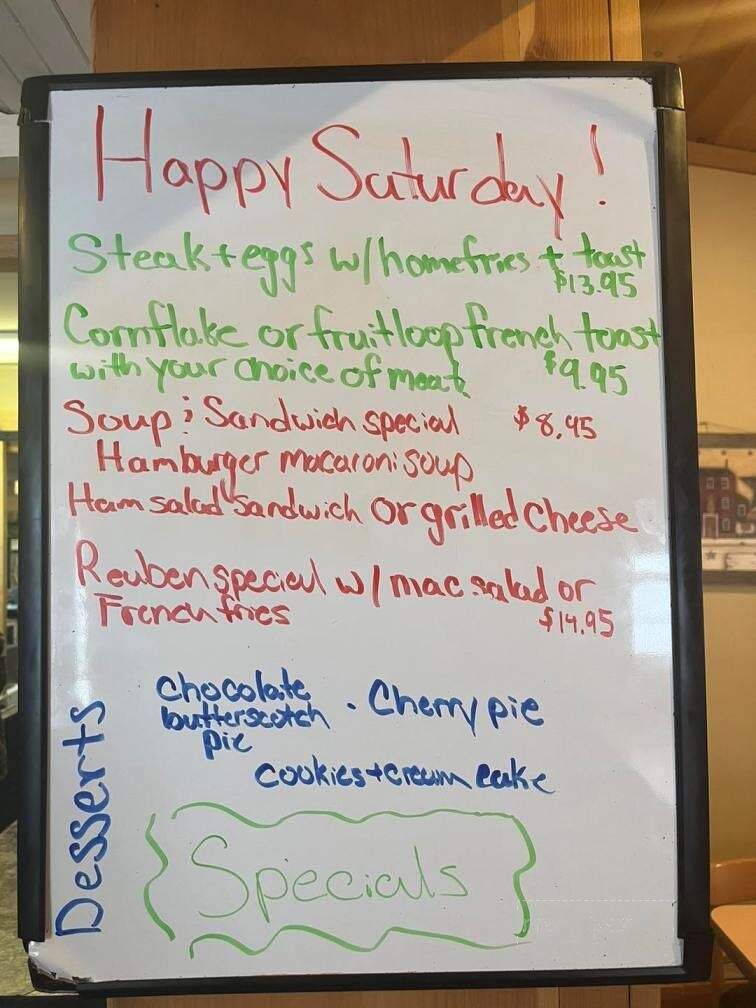 Happy Saturday!
Steak + eggs w/ homefries + toast
$13.95
Cornflake or fruitloop french toast
with your choice of meat $9.95
Soup ; Sandwich special $8.95
Hamburger macaroni soup
Ham salad Sandwich or grilled cheese
Reuben special w/ mac salad or
French fries $14.95
Desserts
Chocolate
butterscotch
pie
· Cherry pie
cookies + cream cake
Specials